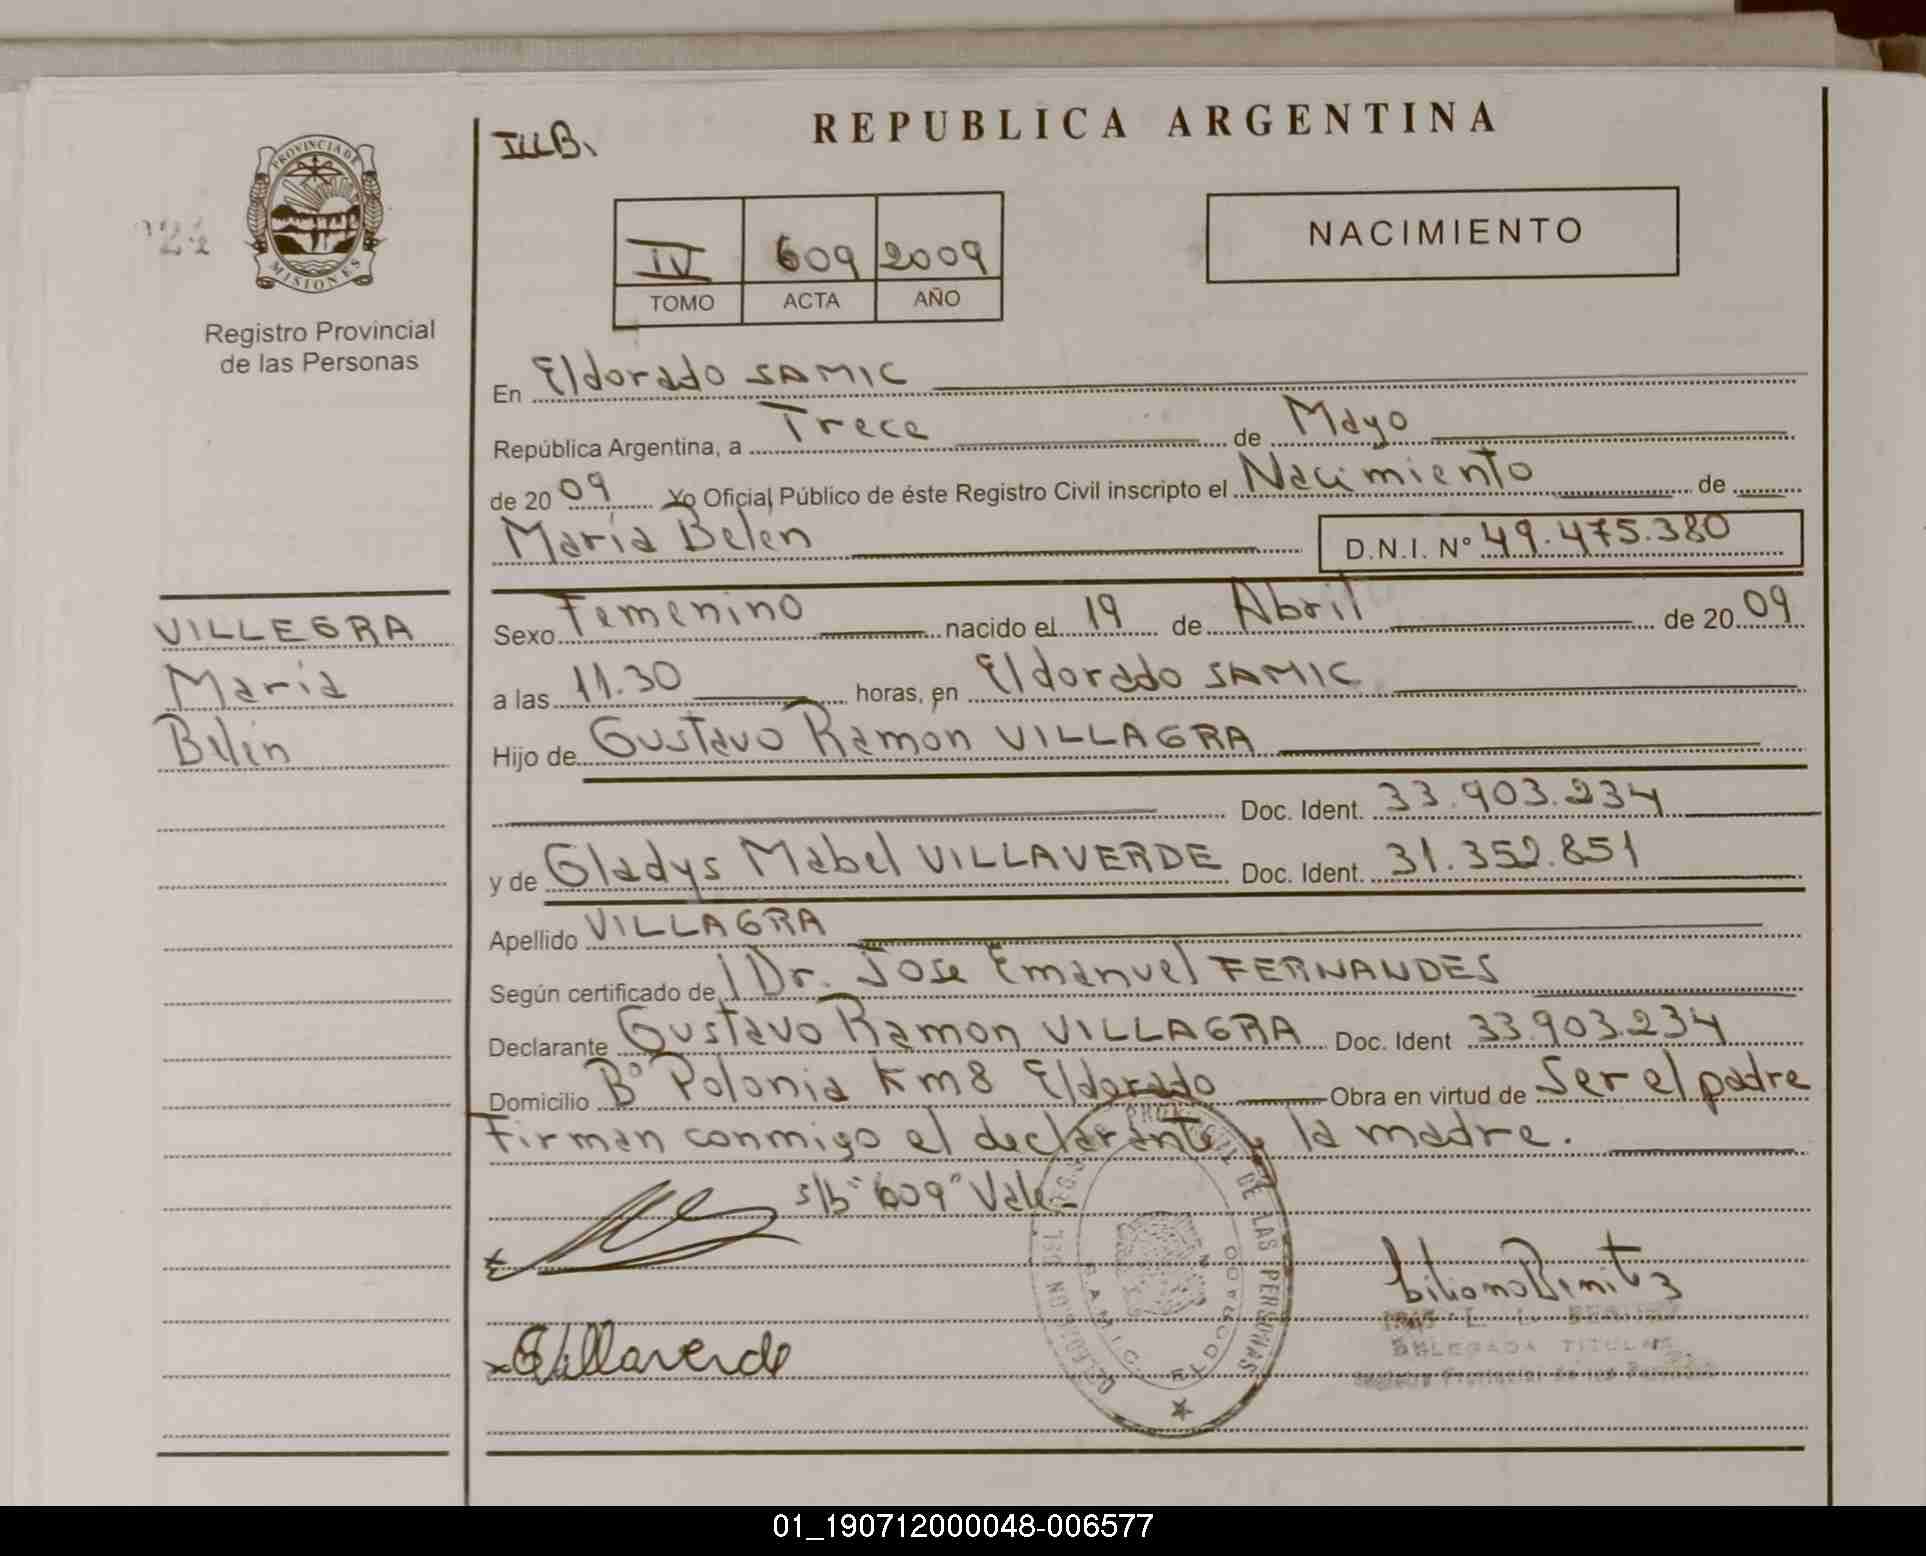 REPUBLICA ARGENTINA
PROVINCIA DE
MISIONES
Registro Provincial
de las Personas
IV 609 2009
TOMO ACTA AÑO
NACIMIENTO
En Eldorado SAMIC
República Argentina, a Trece de Mayo
de 20 09 Yo Oficial Público de éste Registro Civil inscripto el Nacimiento de
María Belén D.N.I. N° 49.475.380
VILLEGRA
María
Belén
Sexo Femenino nacido el 19 de Abril de 20 09
a las 11.30 horas, en Eldorado SAMIC
Hijo de Gustavo Ramon VILLAGRA
Doc. Ident. 33.903.234
y de Gladys Mabel VILLAVERDE Doc. Ident. 31.352.851
Apellido VILLAGRA
Según certificado de Dr. Jose Emanuel FERNANDES
Declarante Gustavo Ramon VILLAGRA Doc. Ident 33.903.234
Domicilio B° Polonia Km8 Eldorado Obra en virtud de Ser el padre
Firman conmigo el declarante y la madre.
s/b "609" Vale
GVillaverde
Liliana Benitez
DELEGADA TITULAR
Registro Provincial de las Personas
DELEGACION DEL REGISTRO PROVINCIAL DE LAS PERSONAS
SAMIC ELDORADO
01_190712000048-006577